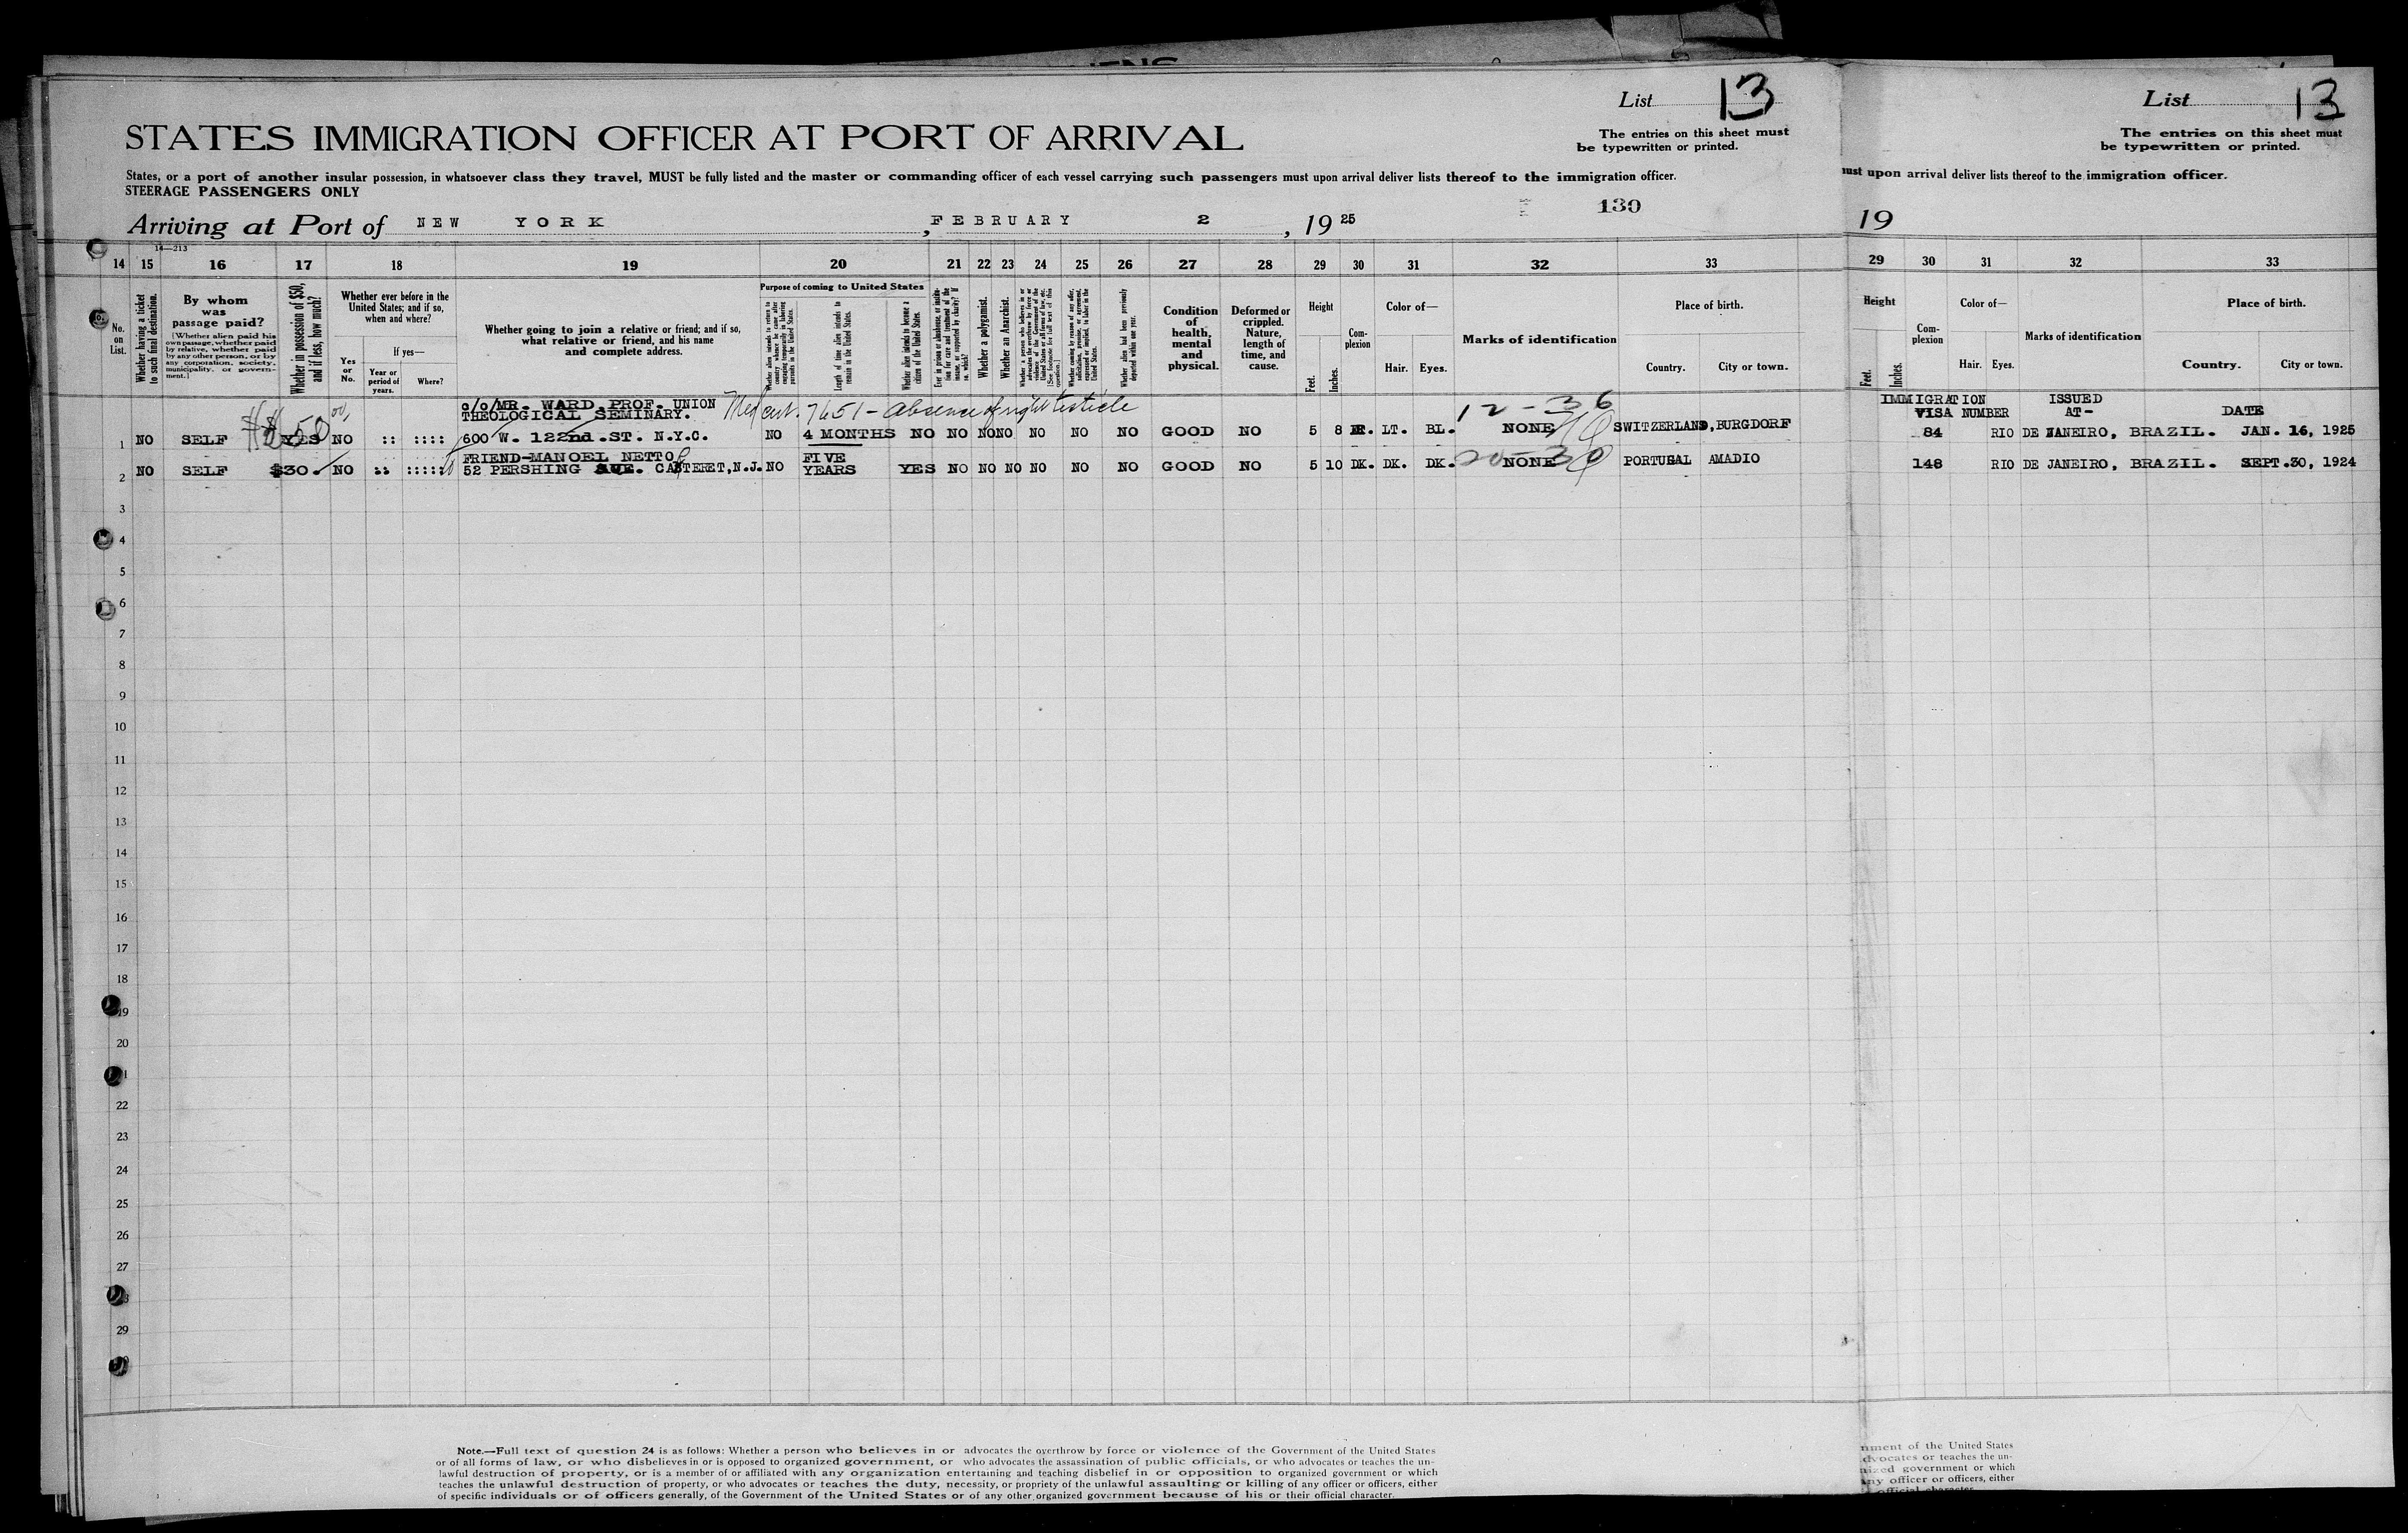 List 13
List 13
STATES IMMIGRATION OFFICER AT PORT OF ARRIVAL
The entries on this sheet must
be typewritten or printed.
The entries on this sheet must
be typewritten or printed.
States, or a port of another insular possession, in whatsoever class they travel, MUST be fully listed and the master or commanding officer of each vessel carrying such passengers must upon arrival deliver lists thereof to the immigration officer.
upon arrival deliver lists thereof to the immigration officer.
STEERAGE PASSENGERS ONLY
130
Arriving at Port of NEW YORK, FEBRUARY 2, 19 25
19
14—213
14 15 16 17 18 19 20 21 22 23 24 25 26 27 28 29 30 31 32 33
29 30 31 32 33
No. on List.
Whether having a ticket to such final destination.
By whom was passage paid?
[Whether alien paid his own passage, whether paid by relative, whether paid by any other person, or by any corporation, society, municipality, or government.]
Whether in possession of $50, and if less, how much?
Whether ever before in the United States; and if so, when and where?
Yes or No.
If yes—
Year or period of years.
Where?
Whether going to join a relative or friend; and if so, what relative or friend, and his name and complete address.
Purpose of coming to United States
Length of time alien intends to remain in the United States.
Whether alien intends to become a citizen of the United States.
Whether a polygamist.
Whether an Anarchist.
Whether alien had been previously deported within one year.
Condition of health, mental and physical.
Deformed or crippled. Nature, length of time, and cause.
Height
Feet. Inches.
Complexion
Color of—
Hair. Eyes.
Marks of identification
Place of birth.
Country. City or town.
Height
Feet. Inches.
Complexion
Color of—
Hair. Eyes.
Marks of identification
Place of birth.
Country. City or town.
c/o/MR. WARD PROF. UNION
THEOLOGICAL SEMINARY.
Med cert. 7651 - Absence of right testicle
12-36
IMMIGRATION VISA NUMBER
ISSUED AT-
DATE
1 NO SELF YES $50 00 NO :: :::: 600 W. 122nd. ST. N.Y.C. NO 4 MONTHS NO NO NO NO NO NO NO GOOD NO 5 8 LT. BL. NONE SWITZERLAND, BURGDORF
84 RIO DE JANEIRO, BRAZIL. JAN. 16, 1925
FRIEND-MANOEL NETTO
20-30
2 NO SELF $30. NO :: :::::: 52 PERSHING AVE. CARTERET, N.J. NO FIVE YEARS YES NO NO NO NO NO NO GOOD NO 5 10 DK. DK. DK. NONE PORTUGAL AMADIO
148 RIO DE JANEIRO, BRAZIL. SEPT.30, 1924
3
4
5
6
7
8
9
10
11
12
13
14
15
16
17
18
19
20
22
23
24
25
26
27
29
Note.—Full text of question 24 is as follows: Whether a person who believes in or advocates the overthrow by force or violence of the Government of the United States
or of all forms of law, or who disbelieves in or is opposed to organized government, or who advocates the assassination of public officials, or who advocates or teaches the un-
lawful destruction of property, or is a member of or affiliated with any organization entertaining and teaching disbelief in or opposition to organized government or which
teaches the unlawful destruction of property, or who advocates or teaches the duty, necessity, or propriety of the unlawful assaulting or killing of any officer or officers, either
of specific individuals or of officers generally, of the Government of the United States or of any other organized government because of his or their official character.
nment of the United States
dvocates or teaches the un-
nized government or which
any officer or officers, either
official character.